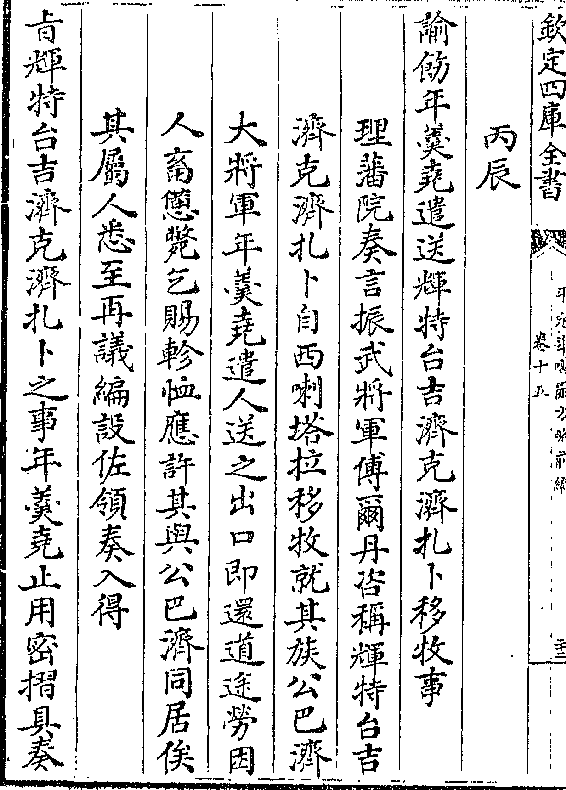 欽定四庫全書
平定準噶爾方略前編
卷十五
丙辰
諭飭年羮堯遣送輝特台吉濟克濟扎卜移牧事
理藩院奏言振武將軍傅爾丹咨稱輝特台吉
濟克濟扎卜自西喇塔拉移牧就其族公巴濟
大將軍年羮堯遣人送之出口即還道途勞困
人畜憊斃乞賜軫恤應許其與公巴濟同居俟
其屬人悉至再議編設佐領奏入得
㫖輝特台吉濟克濟扎卜之事年羮堯止用密摺具奏